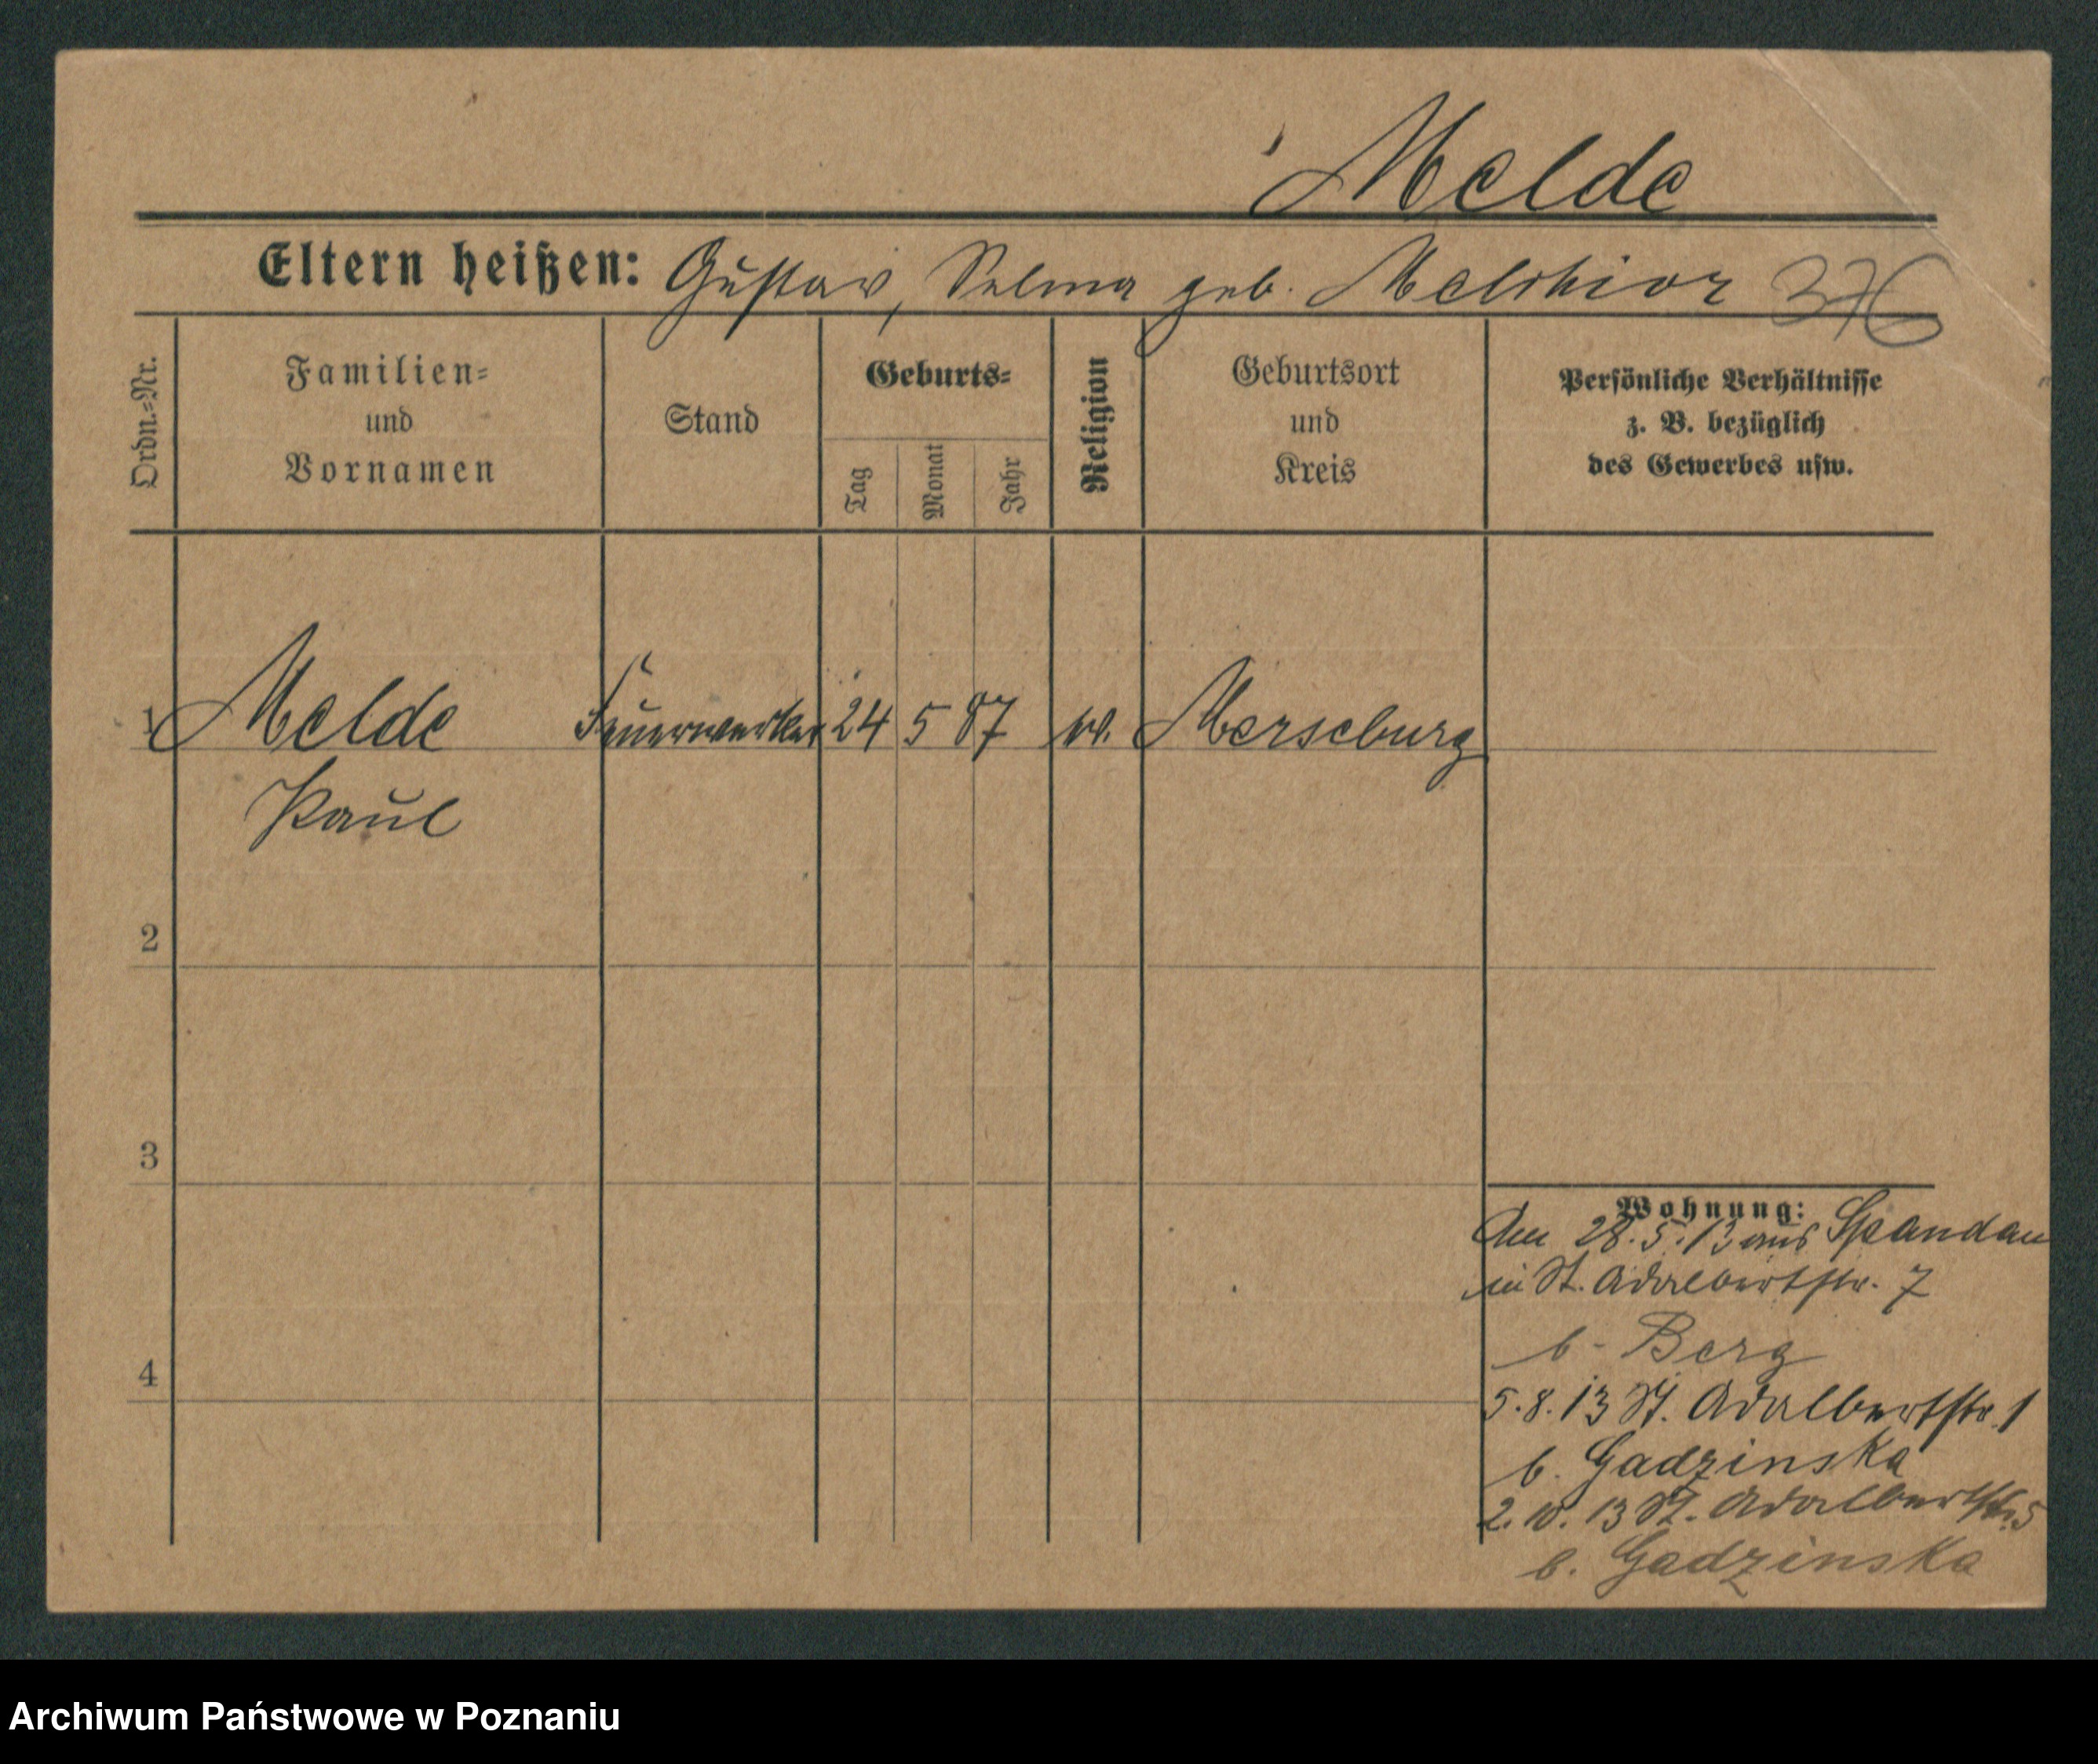 Melde
Eltern heißen: Gustav, Selma geb. Melchior 376
Ordn.-Nr.
Familien-
und
Vornamen
Stand
Geburts-
Tag
Monat
Jahr
Religion
Geburtsort
und
Kreis
Persönliche Verhältnisse
z. B. bezüglich
des Gewerbes usw.
1 Melde Feuerwerker 24 5 87 Merseburg
Paul
2
3
4
Wohnung:
28.5.13 aus Spandau
in St. Adalbertstr. 7
b. Berg
5.8.13 St. Adalbertstr. 1
b. Gadzinska
2.10.13 St. Adalbertstr. 5
b. Gadzinska
Archiwum Państwowe w Poznaniu